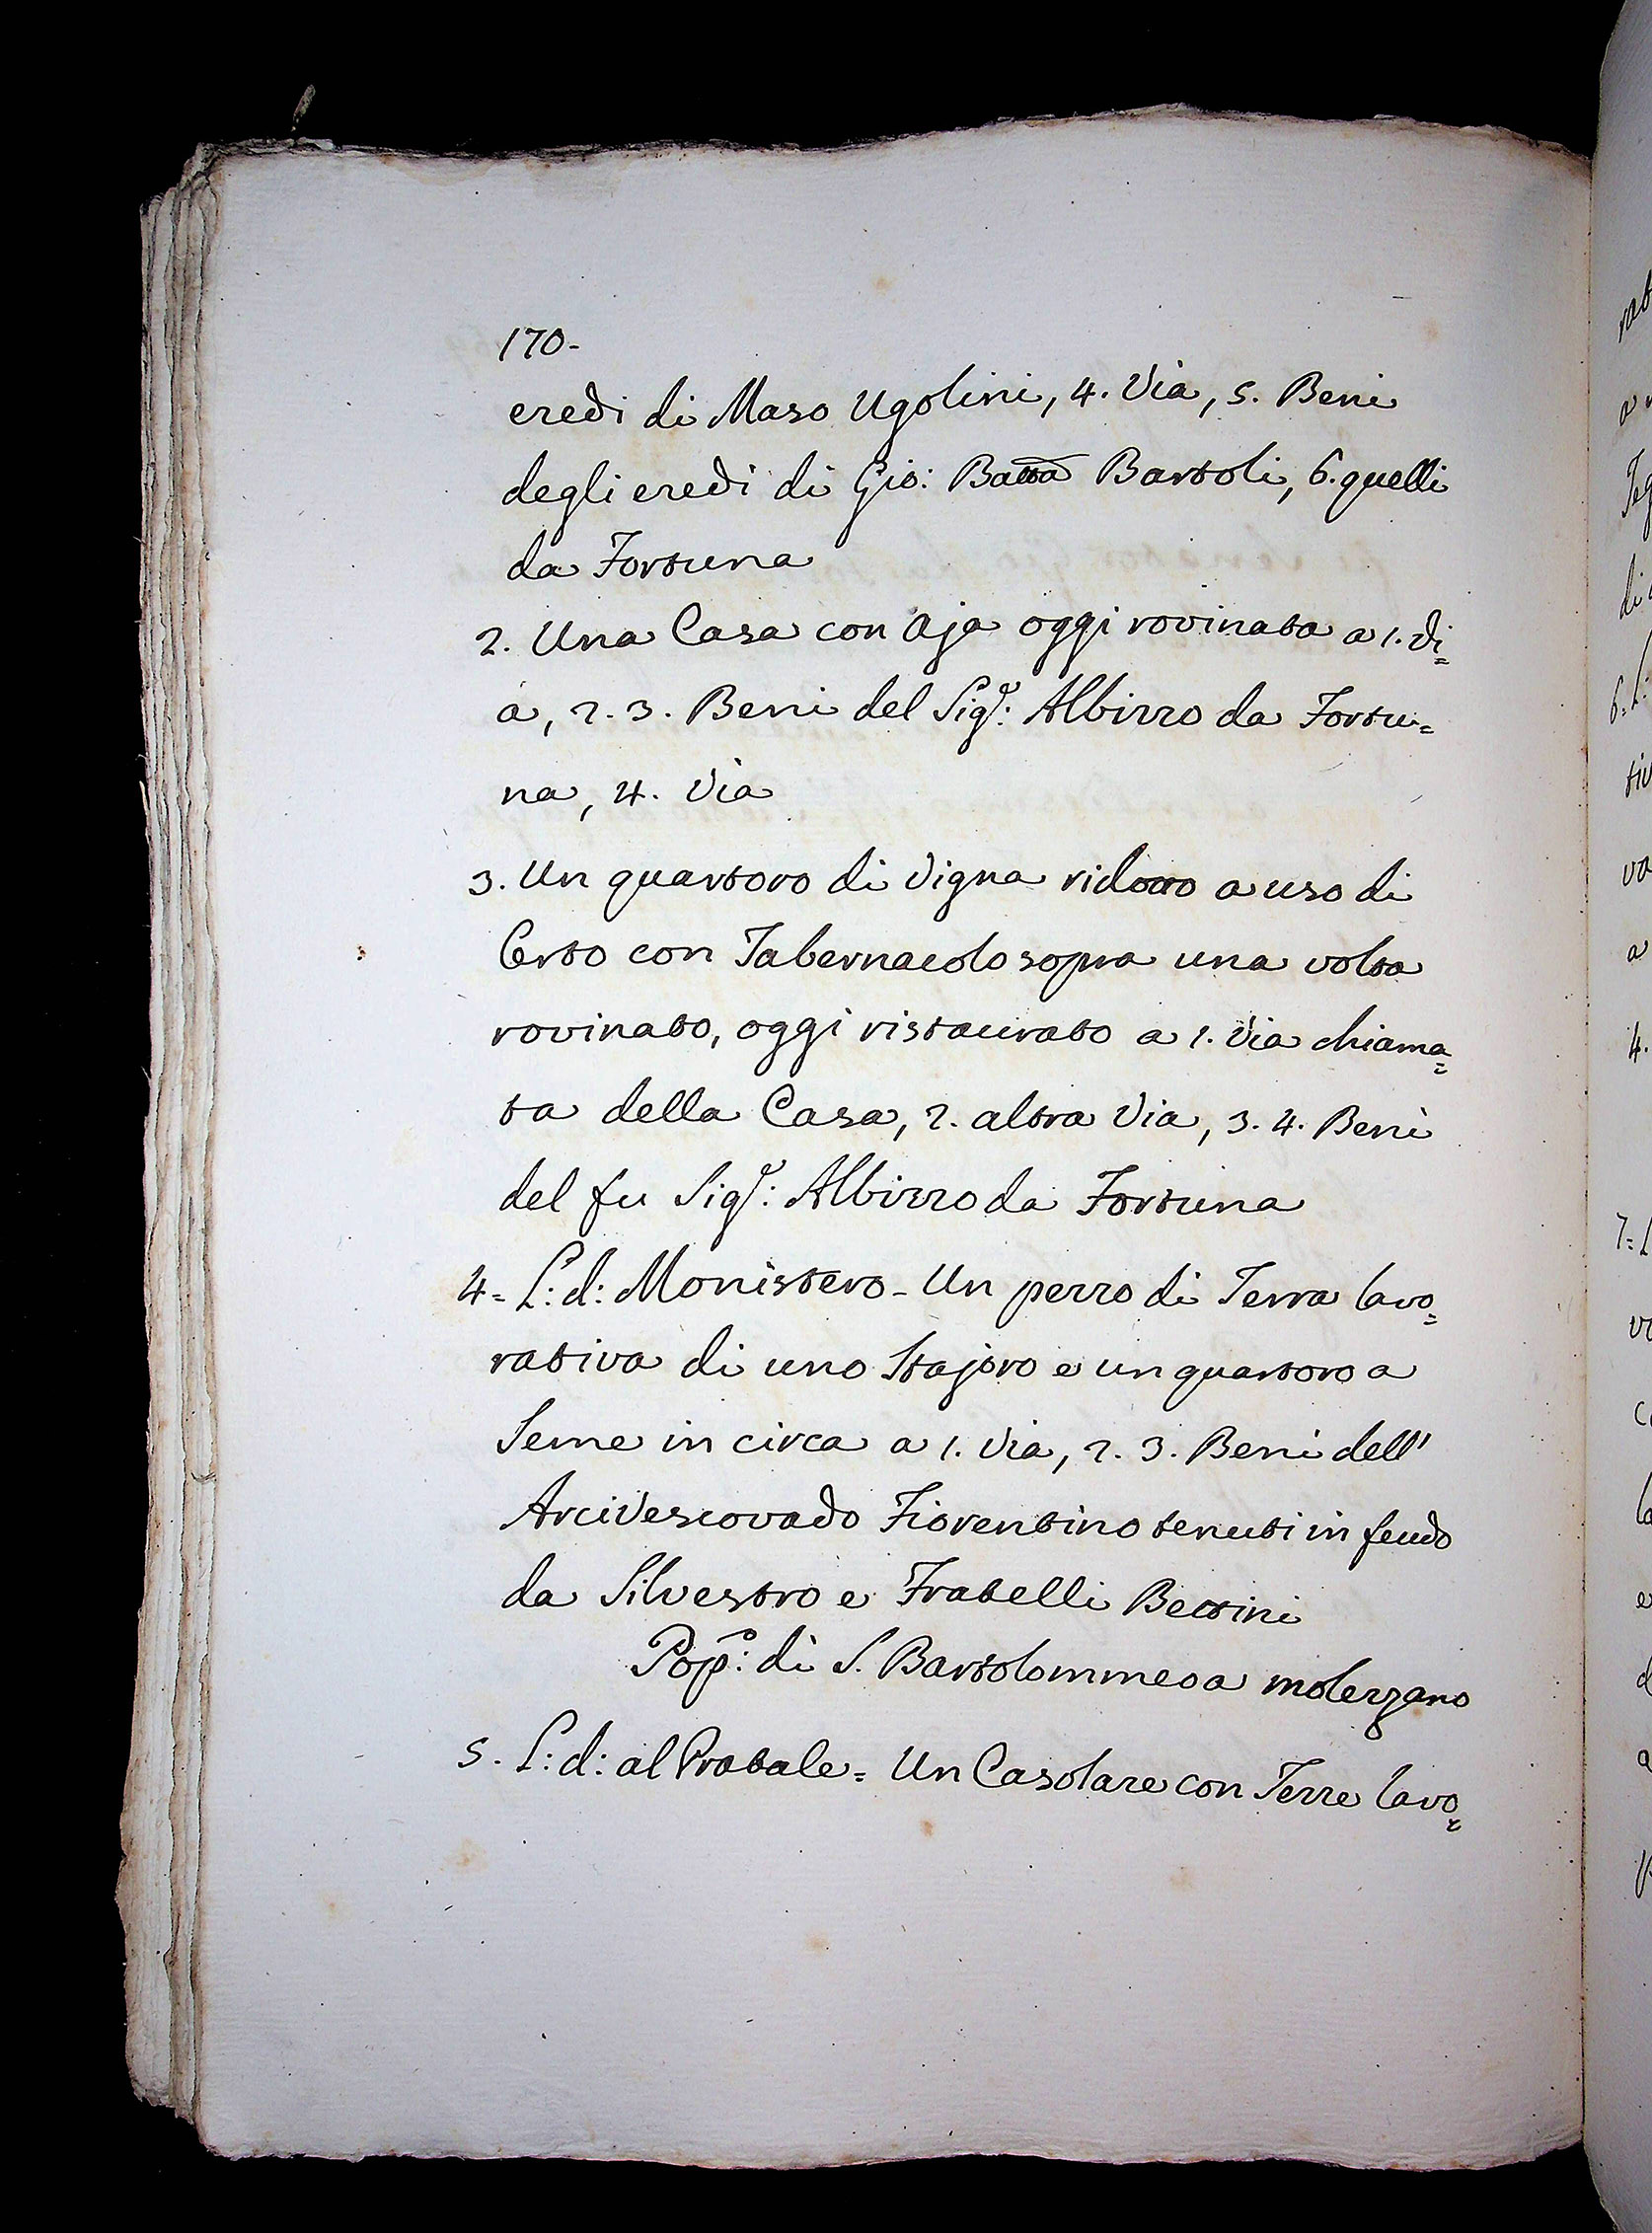 170-
eredi di Maso Ugolini, 4. Via, 5. Beni
degli eredi di Gio: Batta Bartoli, 6. quelli
da Fortuna
2. Una Casa con Aja oggi rovinata a 1. Vi=
a, 2. 3. Beni del Sigr: Albizzo da Fortu=
na, 4. Via
3. Un quartoro di Vigna ridotto a uso di
Orto con Tabernacolo sopra una volta
rovinato, oggi ristaurato a 1. Via chiama=
ta della Casa, 2. altra Via, 3. 4. Beni
del fu Sigr: Albizzo da Fortuna
4= L: d: Monistero - Un pezzo di Terra lavo=
rativa di uno Stajoro e un quartoro a
Seme in circa a 1. Via, 2. 3. Beni dell'
Arcivescovado Fiorentino tenuti in feudo
da Silvestro e Fratelli Bettini
Popo: di S. Bartolommeo a Molezzano
5. L: d: al Pratale = Un Casolare con Terre lavo=